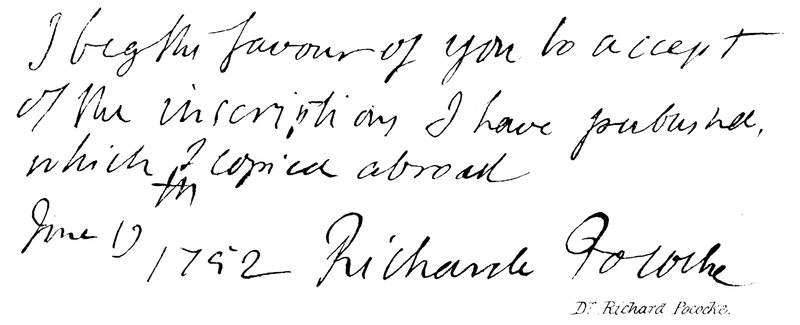 I beg the favour of you to accept
of the inscriptions I have publishd,
which I copied abroad
June 19th 1752 Richard Pococke
Dr. Richard Pococke.